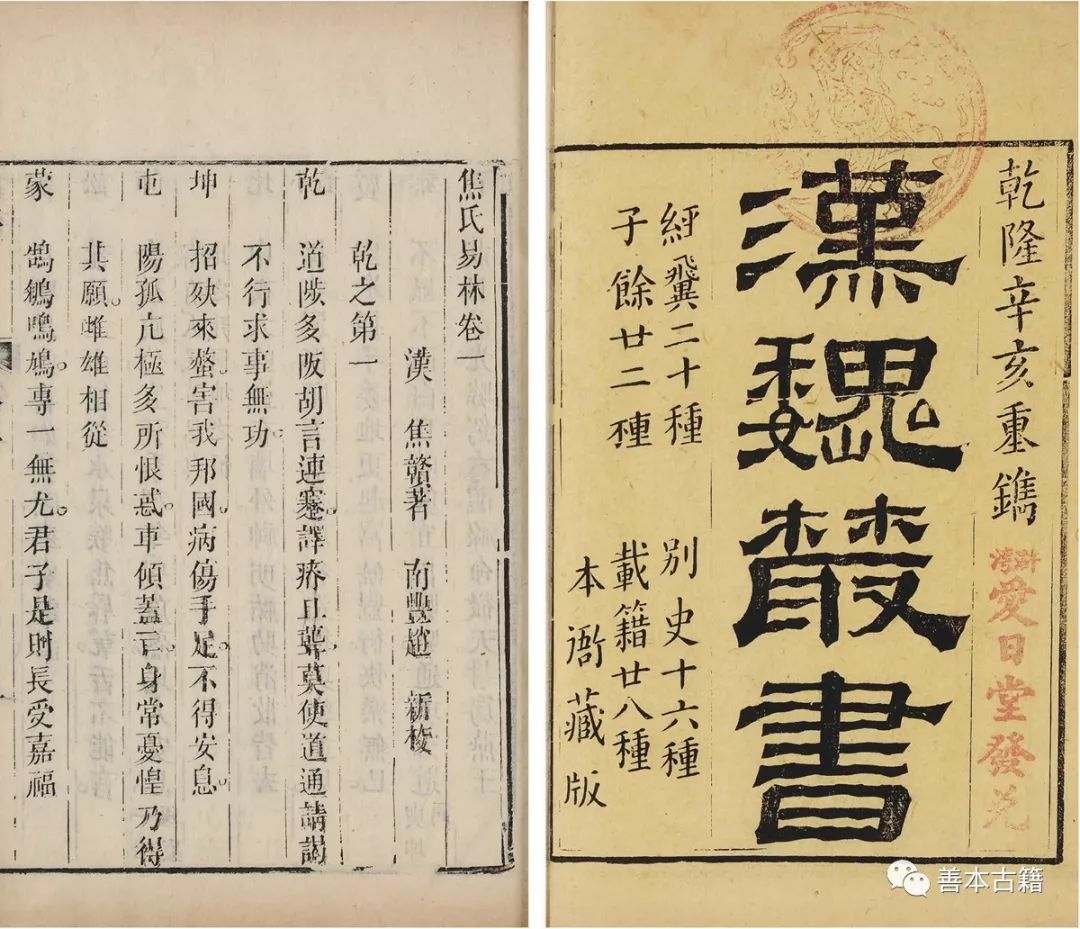 乾隆辛亥重鐫
漢魏叢書
經翼二十種 別史十六種
子餘廿二種 載籍廿八種
本衙藏版
愛日堂發兌
焦氏易林卷一
漢 焦贛著 南豐趙 新校
乾之第一
乾 道陟多阪胡言連蹇譯瘠且聾莫使道通請謁
不行求事無功
坤 招殃來螫害我邦國病傷手足不得安息
屯 陽孤亢極多所恨惑車傾蓋亡身常憂惶乃得
其願雌雄相從
蒙 鵠鵴鳴鳩專一無尤君子是則長受嘉福
善本古籍